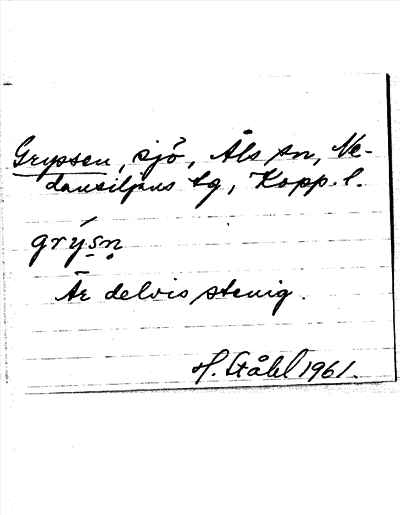 Grypsen, sjö, Åls sn, Ne-
dansiljans tg, Kopp. l.
grýsn
Är delvis stenig.
H. Ståhl 1961.